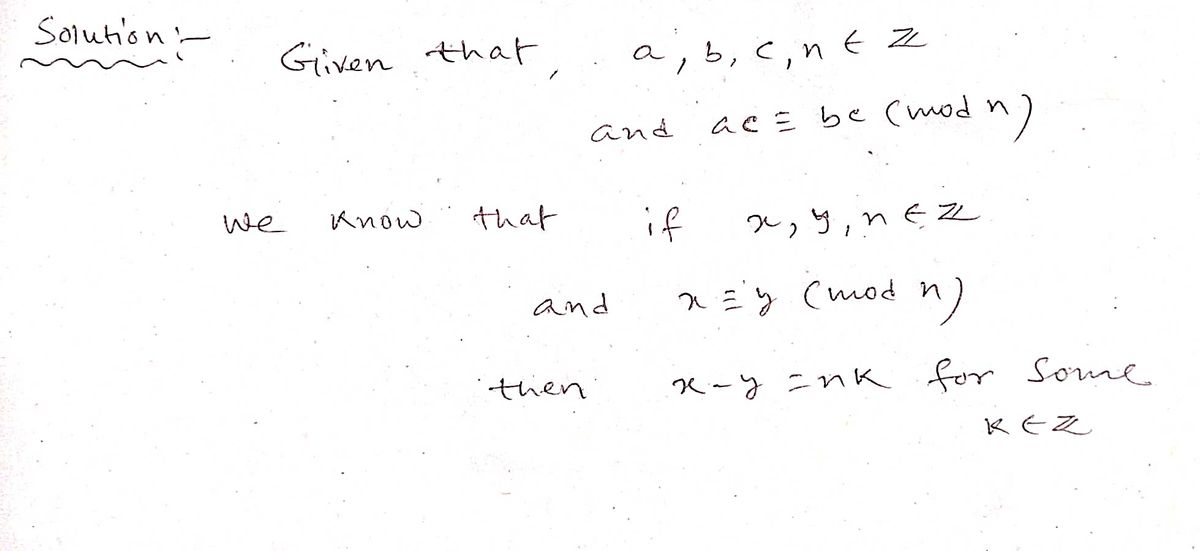 Solution :-
Given that, a, b, c, n ∈ ℤ
and ac ≡ bc (mod n)
we know that if x, y, n ∈ ℤ
and x ≡ y (mod n)
then x-y = nK for Some
K ∈ ℤ